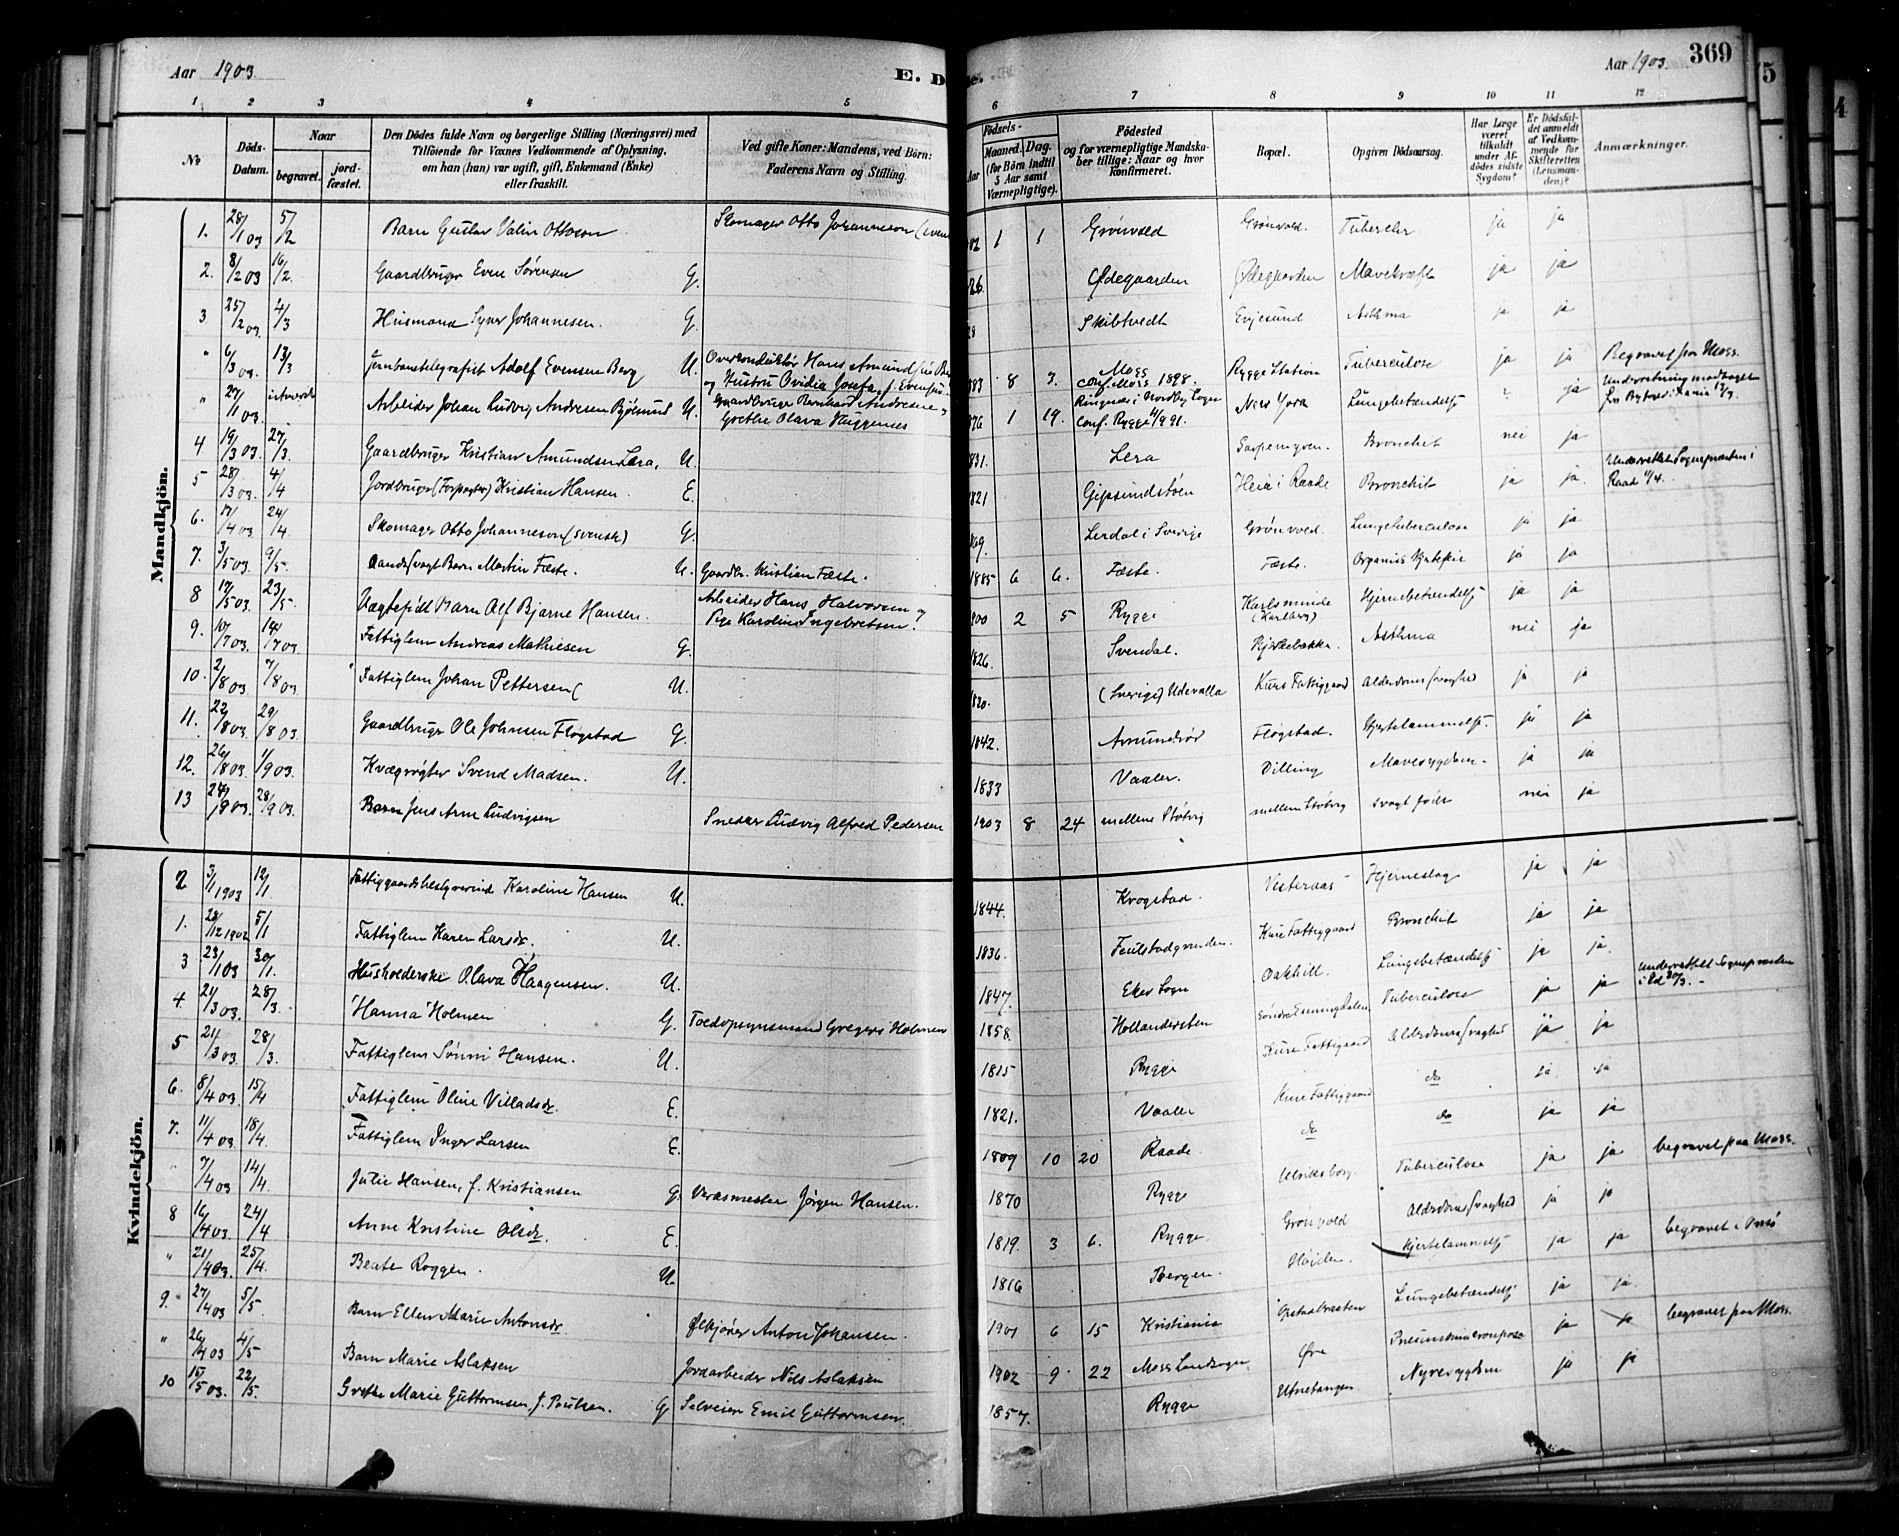 Aar 1903.
E. D
369
Aar 1903
1 2 3 4 5 6 7 8 9 10 11 12
No
Döds-Datum.
Naar
begravet.
jord-fæstet.
Den Dödes fulde Navn og borgerlige Stilling (Næringsvei) med Tilföiende for Voxnes Vedkommende af Oplysning, om han (hun) var ugift, gift, Enkemand (Enke) eller fraskilt.
Ved gifte Koner: Mandens, ved Börn: Faderens Navn og Stilling.
Födsels-
Aar
Maaned.
Dag.
(for Börn indtil 5 Aar samt Værnepligtige).
Födested og for værnepligtige Mandskaber tillige: Naar og hvor Konfirmeret.
Bopæl.
Opgiven Dödsaarsag.
Har Læge været tilkaldt under Afdödes sidste Sygdom?
Er Dödsfaldet anmeldt af Vedkommende for Skifteretten (Lensmanden)?
Anmærkninger.
Mandkjön.
1. 28/1 03 5/2 Barn Gustav Valin Ottoson Skomager Otto Johanneson 1 1 Grönvold Grönvold. Tubercler ja ja
2. 8/2 03 16/2. Gaardbruger Even Sørensen G. Ødegaarden Ødegaarden Mavekræft ja ja
3 25/2 03. 4/3 Husmand Syver Johannesen. G. Skibtvedt Evjesund Asthma ja ja
" 6/3 03. 13/3 Jernbanetelegrafist Adolf Evensen Berg U. Overkonduktør Hans Amundsen og Hustru Ovidia Josefa, f. Evensen 883 8 3. Moss conf. Moss 1898. Rygge Station Tuberculose ja ja Begravet paa Moss.
" 27/1 03. Arbeider Johan Ludvig Andresen Bjölsund U. Gaardbruger Bernhard Andresen, Grethe Olava Huggenes 876 1 19. Ringnæs i Nordby Sogn conf. Rygge 4/9 91. New York Lungebetændelse ja Underretning modtaget
4 19/3 03. 27/3. Gaardbruger Kristian Amundsen Lera, U. 831. Lera Bronchit nei ja
5 28/3 03. 4/4 Jordbruger (Forpagter) Kristian Hansen. E. 821 Gipsundstøen Heia i Raade Bronchit ja ja. Underrettet Sognepræsten i Raade 11/4.
6. 17/4 03 24/4 Skomager Otto Johanneson (svensk) G. 69. Lerdal i Sverige Grönvold. Lungetuberculose ja ja
7. 3/5 03. 9/5. Aandssvagt Barn Martin Fæste. U. Gaardbr. Kristian Fæste. 1885 6 6. Fæste. Fæste. Organisk Hjertefeil ja ja
8 17/5 03. 23/5. Uægtefödt Barn Alf Bjarne Hansen. Arbeider Hans Halvorsen og Pige Karoline Ingebretsen. 900 2 5 Rygge Karlsminde (Karlberg) Hjernebetændelse ja ja
9. 10/7 03. 14/7 03. Fattiglem Andreas Mathiesen G. 1826. Svendal. Kjirkebakke. Asthma nei ja
10. 2/8 03. 7/8 03 Fattiglem Johan Pettersen U. 820. (Sverige) Udevalla Kure Fattiggaard Alderdomssvaghed ja ja
11. 22/8 03. 29/8 03. Gaardbruger Ole Johnsen Fløgstad G. 1842. Amundrød Fløgstad. Hjertelammelse. ja ja
12. 26/8 03. 1/9 03. Kvægrøgter Svend Madsen. U. 1833 Vaaler. Dilling Mavesygdom. ja ja
13 24/9 03. 28/9 03. Barn Jens Arne Ludvigsen Snedker Ludvig Alfred Pedersen 1903 8 24 mellem Støtvig mellem Støtvig svagt födt nei ja
Kvindekjön.
2 3/1 1903 12/1. Fattiggaardsbestyrerinde Karoline Hansen U. 1844. Krogstad. Vesteraas Hjerneslag ja ja
1. 28/12 1902 5/1 Fattiglem Karen Larsdr. U. 1836. Feulstadgrunden. Kure Fattiggaard Bronchit ja ja
3 23/1 03 30/1. Husholderske Olava Haagensen. U. 1847. Eker Sogn Oakhill. Lungebetændelse ja ja.
4. 21/3 03. 28/3. Hanna Holmen G. Toldopsynsmand Gregers Holmen 1858. Hollændersten Søndre Enningdalen Tuberculose ja ja Underrettet Sognepræsten
5 21/3 03. 28/3. Fattiglem Sønni Hansen. U. 1815 Rygge Kure Fattiggaard Alderdomssvaghed ja ja
6. 8/4 03. 15/4 Fattiglem Oline Villadsdr. E. 1821. Vaaler Kure Fattiggaard do ja. ja
7. 11/4 03. 18/4. Fattiglem Inger Larsen E. 1809 10 20 Raade do do ja ja
" 7/4 03 14/4. Julie Hansen, f. Kristiansen G. Værksmester Jörgen Hansen. 1870 Rygge Ulriksborg. Tuberculose ja ja begravet paa Moss.
8 16/4 03. 24/4 Anne Kristine Olsdr. E. 1819. 3 6. Rygge. Grönvold Alderdomssvaghed ja ja
" 21/4 03. 25/4. Beate Roggen. U. 1816 Bergen. Höiden. Hjertelammelse ja ja begravet i Onsö
9. 27/4 03 5/5. Barn Ellen Marie Antonsdr. Ølkjører Anton Johansen. 1901 6 15 Kristiania Lungebetændelse ja ja.
" 26/4 03 4/5 Barn Marie Aslaksen Jordarbeider Nils Aslaksen 1902 9 22 Moss Landsogn Øre ja ja begravet paa Moss.
10 15/5 03. 22/5. Grethe Marie Guttormsen, f. Poulsen. G. Selveier Emil Guttormsen. 1857. Rygge Ufnetangen. Nyresygdom ja ja